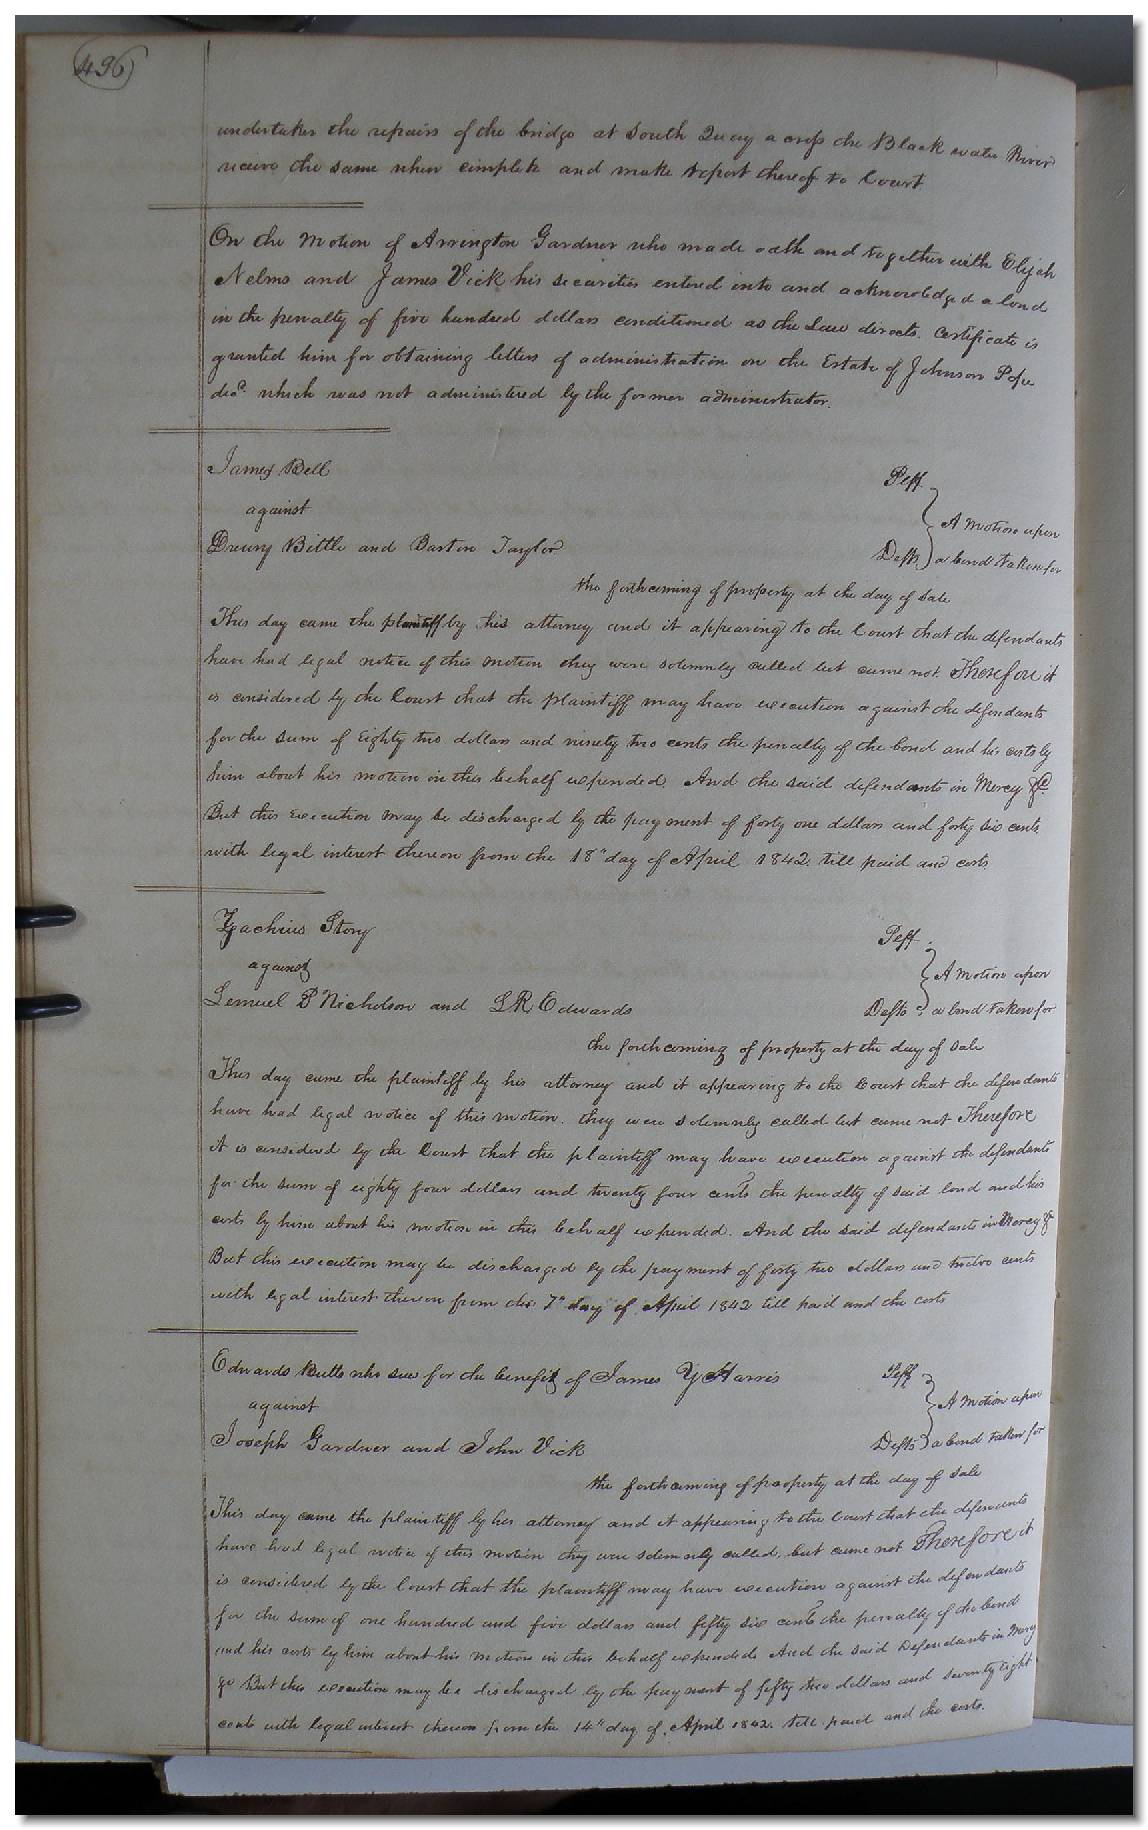 496
undertaker the repairs of the bridge at South Quay a cross the Black water River
recieve the same when complete and make report thereof to Court
On the Motion of Arrington Gardner who made oath and together with Elijah
Nelms and James Vick his securities entered into and acknowledged a bond
in the penalty of five hundred dollars conditioned as the Law directs. Certificate is
granted him for obtaining letters of administration on the Estate of Johnson Pope
decd. which was not administered by the former administrator.
James Bell Plff
against
A Motion upon
Drewry Bittle and Barton Taylor Defts a bond taken for
the forthcoming of property at the day of sale
This day came the plaintiff by his attorney and it appearing to the Court that the defendants
have had legal notice of this motion they were solemnly called but came not. Therefore it
is considered by the Court that the plaintiff may have execution against the defendants
for the sum of Eighty two dollars and ninety two cents the penalty of the bond and his costs by
him about his motion in this behalf expended. And the said defendants in Mercy &c.
But this Execution may be discharged by the payment of forty one dollars and forty six cents
with legal interest thereon from the 18th day of April 1842. till paid and costs.
Zachius Story Plff
against
A Motion upon
Lemuel P Nicholson and L R Edwards Defts a bond taken for
the forthcoming of property at the day of sale
This day came the plaintiff by his attorney and it appearing to the Court that the defendants
have had legal notice of this motion. they were solemnly called but came not Therefore
it is considered by the Court that the plaintiff may have execution against the defendants
for the sum of eighty four dollars and twenty four cents the penalty of said bond and his
costs by him about his motion in this behalf expended. And the said defendants in Mercy &
But this execution may be discharged by the payment of forty two dollars and twelve cents
with legal interest thereon from the 7th day of April 1842 till paid and the costs
Edwards Butts who sues for the benefit of James Y Harris Plff
against
A Motion upon
Joseph Gardner and John Vick Defts a bond taken for
the forthcoming of property at the day of sale
This day came the plaintiff by his attorney and it appearing to the Court that the defendants
have had legal notice of this motion they were solemnly called, but came not Therefore it
is considered by the Court that the plaintiff may have execution against the defendants
for the sum of one hundred and five dollars and fifty six cents the penalty of the bond
and his costs by him about his motion in this behalf expended. And the said Defendants in Mercy
&c But this execution may be discharged by the payment of fifty two dollars and seventy eight
cents with legal interest thereon from the 14th day of April 1842. till paid and the costs.